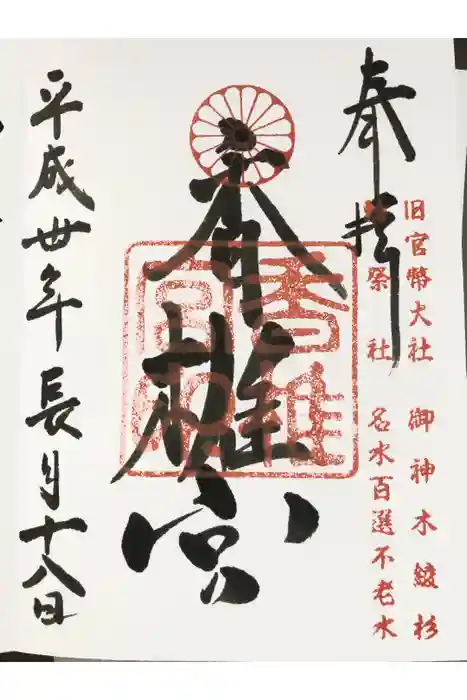 奉拝
旧官幣大社 御神木綾杉
勅祭社 名水百選不老水
香椎宮
香椎
宮印
平成卅年長月十八日